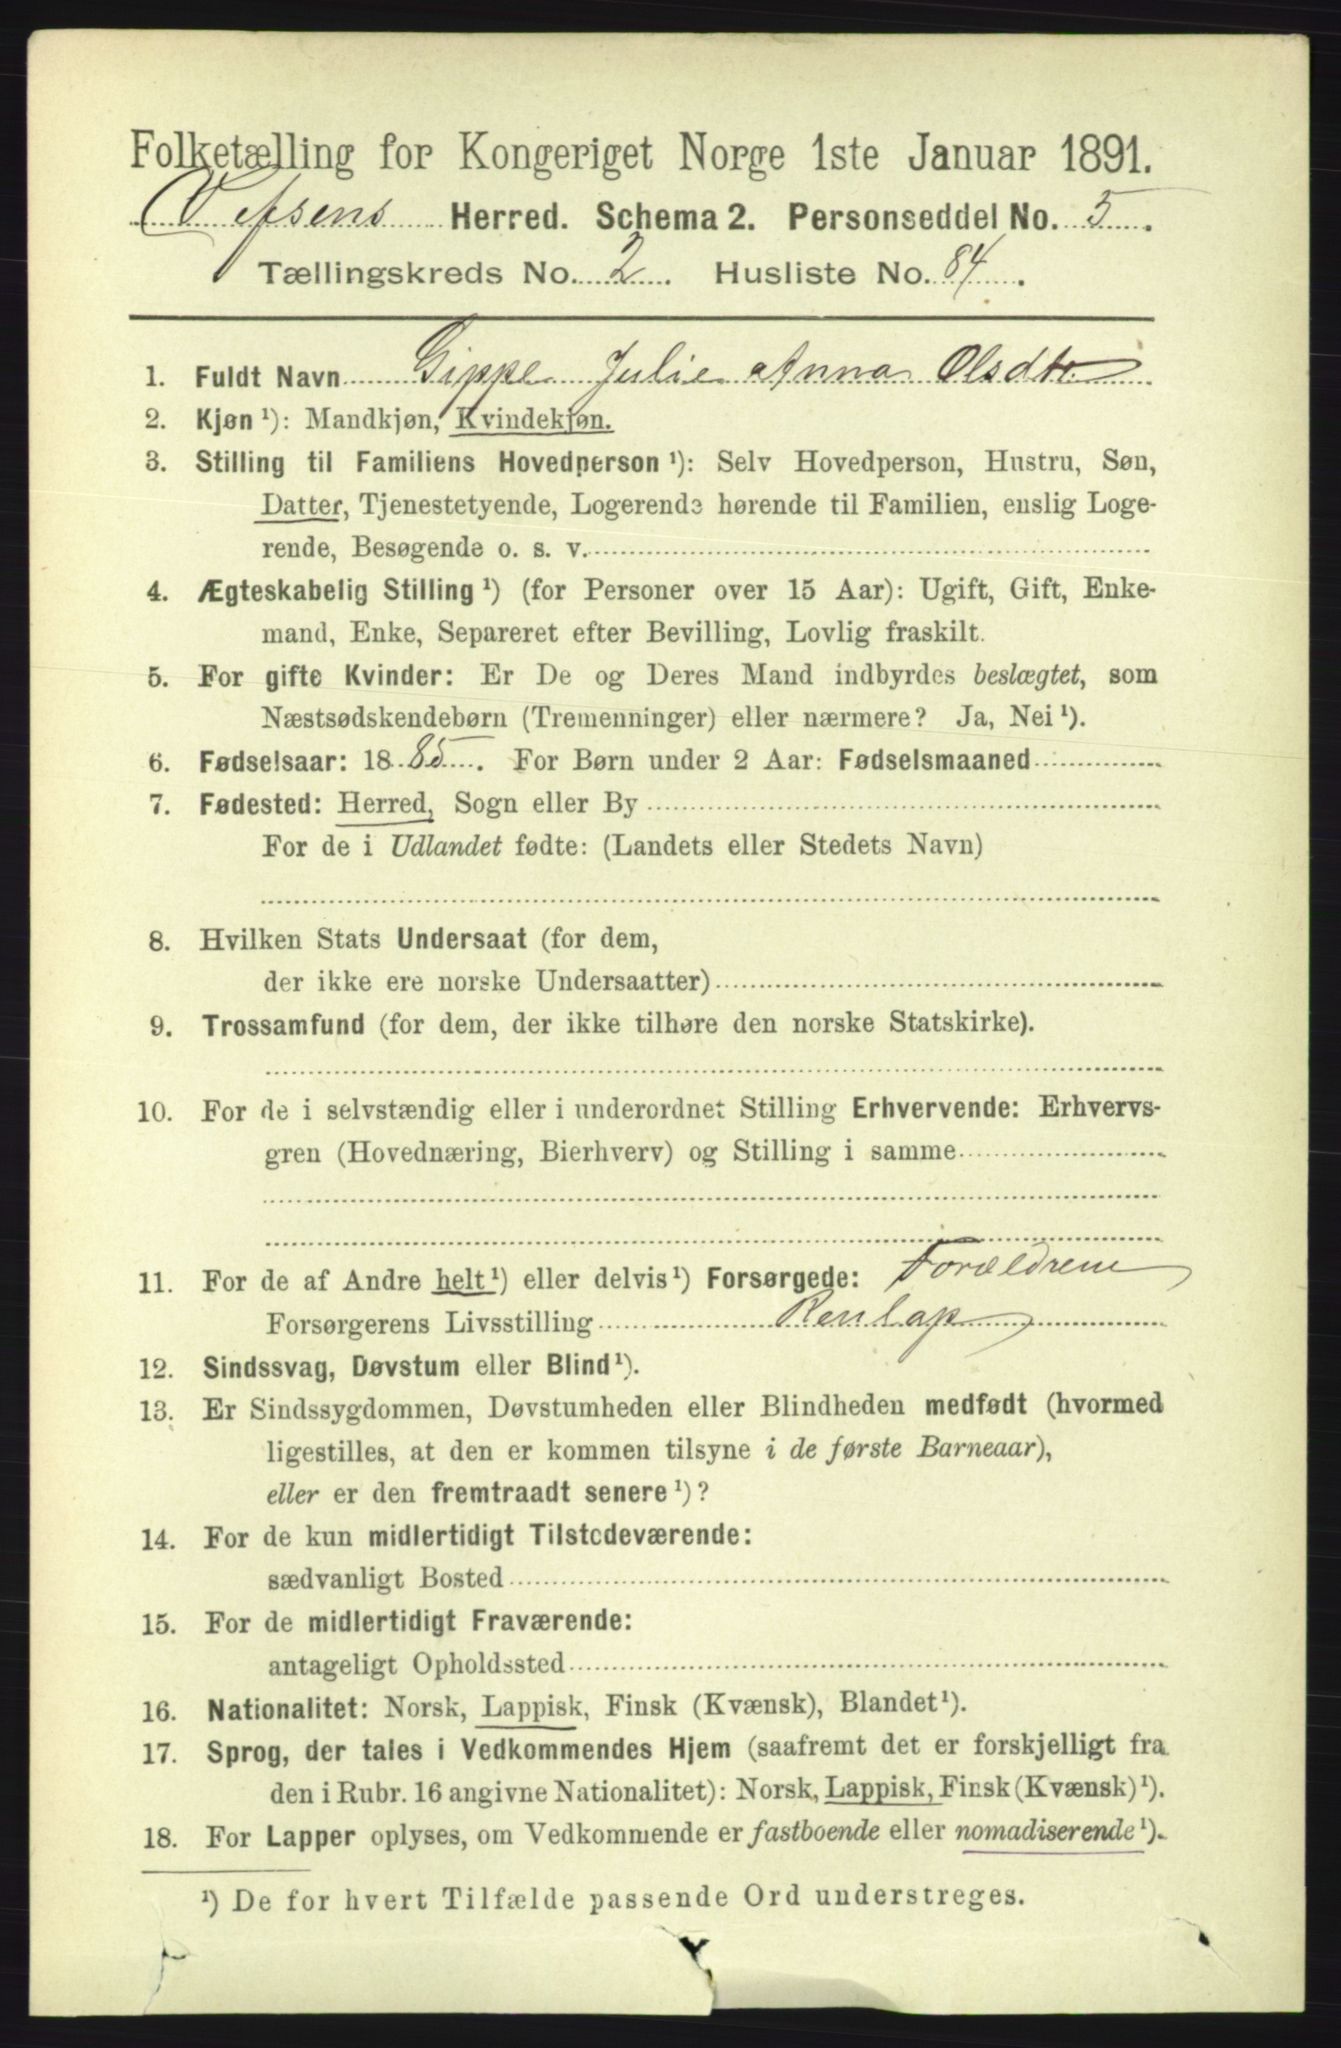 Folketælling for Kongeriget Norge 1ste Januar 1891.
Vefsens Herred. Schema 2. Personseddel No. 5.
Tællingskreds No. 2. Husliste No. 84.
1. Fuldt Navn Gippe Julie Anna Olsdtr
2. Kjøn ¹): Mandkjøn, Kvindekjøn.
3. Stilling til Familiens Hovedperson ¹): Selv Hovedperson, Hustru, Søn,
Datter, Tjenestetyende, Logerende hørende til Familien, enslig Loge-
rende, Besøgende o. s. v.
4. Ægteskabelig Stilling ¹) (for Personer over 15 Aar): Ugift, Gift, Enke-
mand, Enke, Separeret efter Bevilling, Lovlig fraskilt.
5. For gifte Kvinder: Er De og Deres Mand indbyrdes beslægtet, som
Næstsødskendebørn (Tremenninger) eller nærmere? Ja, Nei ¹).
6. Fødselsaar: 1885. For Børn under 2 Aar: Fødselsmaaned
7. Fødested: Herred, Sogn eller By
For de i Udlandet fødte: (Landets eller Stedets Navn)
8. Hvilken Stats Undersaat (for dem,
der ikke ere norske Undersaatter)
9. Trossamfund (for dem, der ikke tilhøre den norske Statskirke).
10. For de i selvstændig eller i underordnet Stilling Erhvervende: Erhvervs-
gren (Hovednæring, Bierhverv) og Stilling i samme
11. For de af Andre helt ¹) eller delvis ¹) Forsørgede: Forældrene
Forsørgerens Livsstilling Renlap
12. Sindssvag, Døvstum eller Blind ¹).
13. Er Sindssygdommen, Døvstumheden eller Blindheden medfødt (hvormed
ligestilles, at den er kommen tilsyne i de første Barneaar),
eller er den fremtraadt senere ¹)?
14. For de kun midlertidigt Tilstedeværende:
sædvanligt Bosted
15. For de midlertidigt Fraværende:
antageligt Opholdssted
16. Nationalitet: Norsk, Lappisk, Finsk (Kvænsk), Blandet ¹).
17. Sprog, der tales i Vedkommendes Hjem (saafremt det er forskjelligt fra
den i Rubr. 16 angivne Nationalitet): Norsk, Lappisk, Finsk (Kvænsk) ¹).
18. For Lapper oplyses, om Vedkommende er fastboende eller nomadiserende ¹).
¹) De for hvert Tilfælde passende Ord understreges.